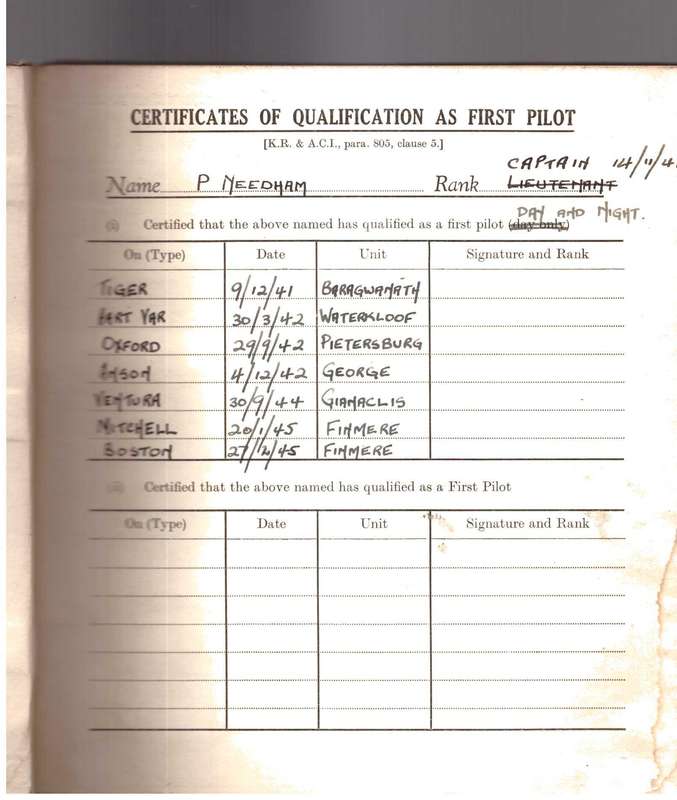 CERTIFICATES OF QUALIFICATION AS FIRST PILOT
[K.R. & A.C.I., para. 805, clause 5.]
CAPTAIN 14/11/4
Name P NEEDHAM Rank LIEUTENANT
DAY AND NIGHT.
(i) Certified that the above named has qualified as a first pilot (day only)
On (Type) Date Unit Signature and Rank
TIGER 9/12/41 BARAGWANATH
HART VAR 30/3/42 WATERKLOOF
OXFORD 29/9/42 PIETERSBURG
ANSON 4/12/42 GEORGE
VENTURA 30/9/44 GIANACLIS
MITCHELL 20/1/45 FINMERE
BOSTON 27/2/45 FINMERE
(ii) Certified that the above named has qualified as a First Pilot
On (Type) Date Unit Signature and Rank